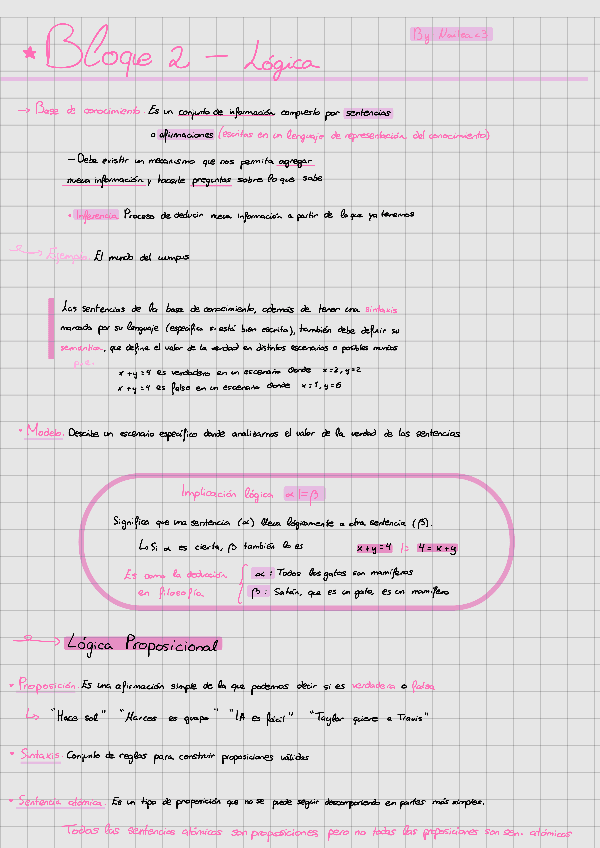 By Nailea <3
★ Bloque 2 – Lógica
→ Base de conocimiento. Es un conjunto de información compuesto por sentencias
o afirmaciones (escritas en un lenguaje de representación del conocimiento)
– Debe existir un mecanismo que nos permita agregar
nueva información y hacerle preguntas sobre lo que sabe
• Inferencia Proceso de deducir nueva información a partir de lo que ya tenemos
Ejemplo. El mundo del wumpus
Las sentencias de la base de conocimiento, además de tener una sintaxis
marcada por su lenguaje (especifica si está bien escrito), también debe definir su
semántica, que define el valor de la verdad en distintos escenarios o posibles mundos
p.ej.
x + y = 4 es verdadero en un escenario donde x=2, y=2
x + y = 4 es falso en un escenario donde x=1, y=6
• Modelo. Describe un escenario específico donde analizamos el valor de la verdad de las sentencias
Implicación lógica α |= β
Significa que una sentencia (α) lleva lógicamente a otra sentencia (β).
↳ Si α es cierta, β también lo es x+y=4 |= 4=x+y
Es como la deducción α : Todos los gatos son mamíferos
en filosofía β : Satán, que es un gato, es un mamífero
→ Lógica Proposicional
• Proposición. Es una afirmación simple de la que podemos decir si es verdadera o falsa
↳ "Hace sol" "Marcos es guapo" "IA es fácil" "Taylor quiere a Travis"
• Sintaxis. Conjunto de reglas para construir proposiciones válidas
• Sentencia atómica. Es un tipo de proposición que no se puede seguir descomponiendo en partes más simples.
Todas las sentencias atómicas son proposiciones, pero no todas las proposiciones son sen. atómicas